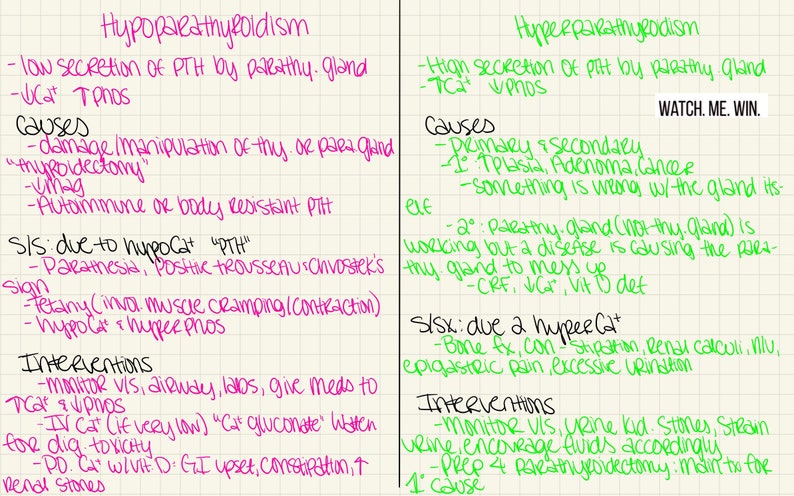 Hypoparathyroidism
- low secretion of PTH by parathy. gland
- ↓Ca⁺ ↑phos
Causes
- damage/manipulation of thy. or para.gland
"thyroidectomy"
- ↓mag
- Autoimmune or body resistant PTH
S/S: due to hypoCa⁺ "PTH"
- Parathesia, Positive trousseau & chvostek's
sign
- Tetany (invol. muscle cramping/contraction)
- hypoCa⁺ & hyperphos
Interventions
- monitor v/s, airway, labs, give meds to
↑Ca⁺ & ↓phos
- IV Ca⁺ (if very low) "Ca⁺ gluconate" Watch
for dig. toxicity
- PO. Ca⁺ w/vit.D: G.I upset, constipation, ↑
Renal stones
Hyperparathyroidism
- High secretion of PTH by parathy. gland
- ↑Ca⁺ ↓phos
WATCH. ME. WIN.
Causes
- Primary & secondary
- 1°: ↑plasia, Adenoma, Cancer
- something is wrong w/the gland its-
elf
- 2°: parathy. gland (not thy. gland) is
working but a disease is causing the para-
thy. gland to mess up
- CRF, ↓Ca⁺, vit D def
S/Sx: due 2 hyperCa⁺
- Bone fx, con - stipation, Renal calculi, n/v,
epigastric pain, excessive urination
Interventions
- monitor v/s, urine kid. stones, strain
urine, encourage fluids accordingly
- Prep 4 parathyroidectomy: main tx for
1° cause